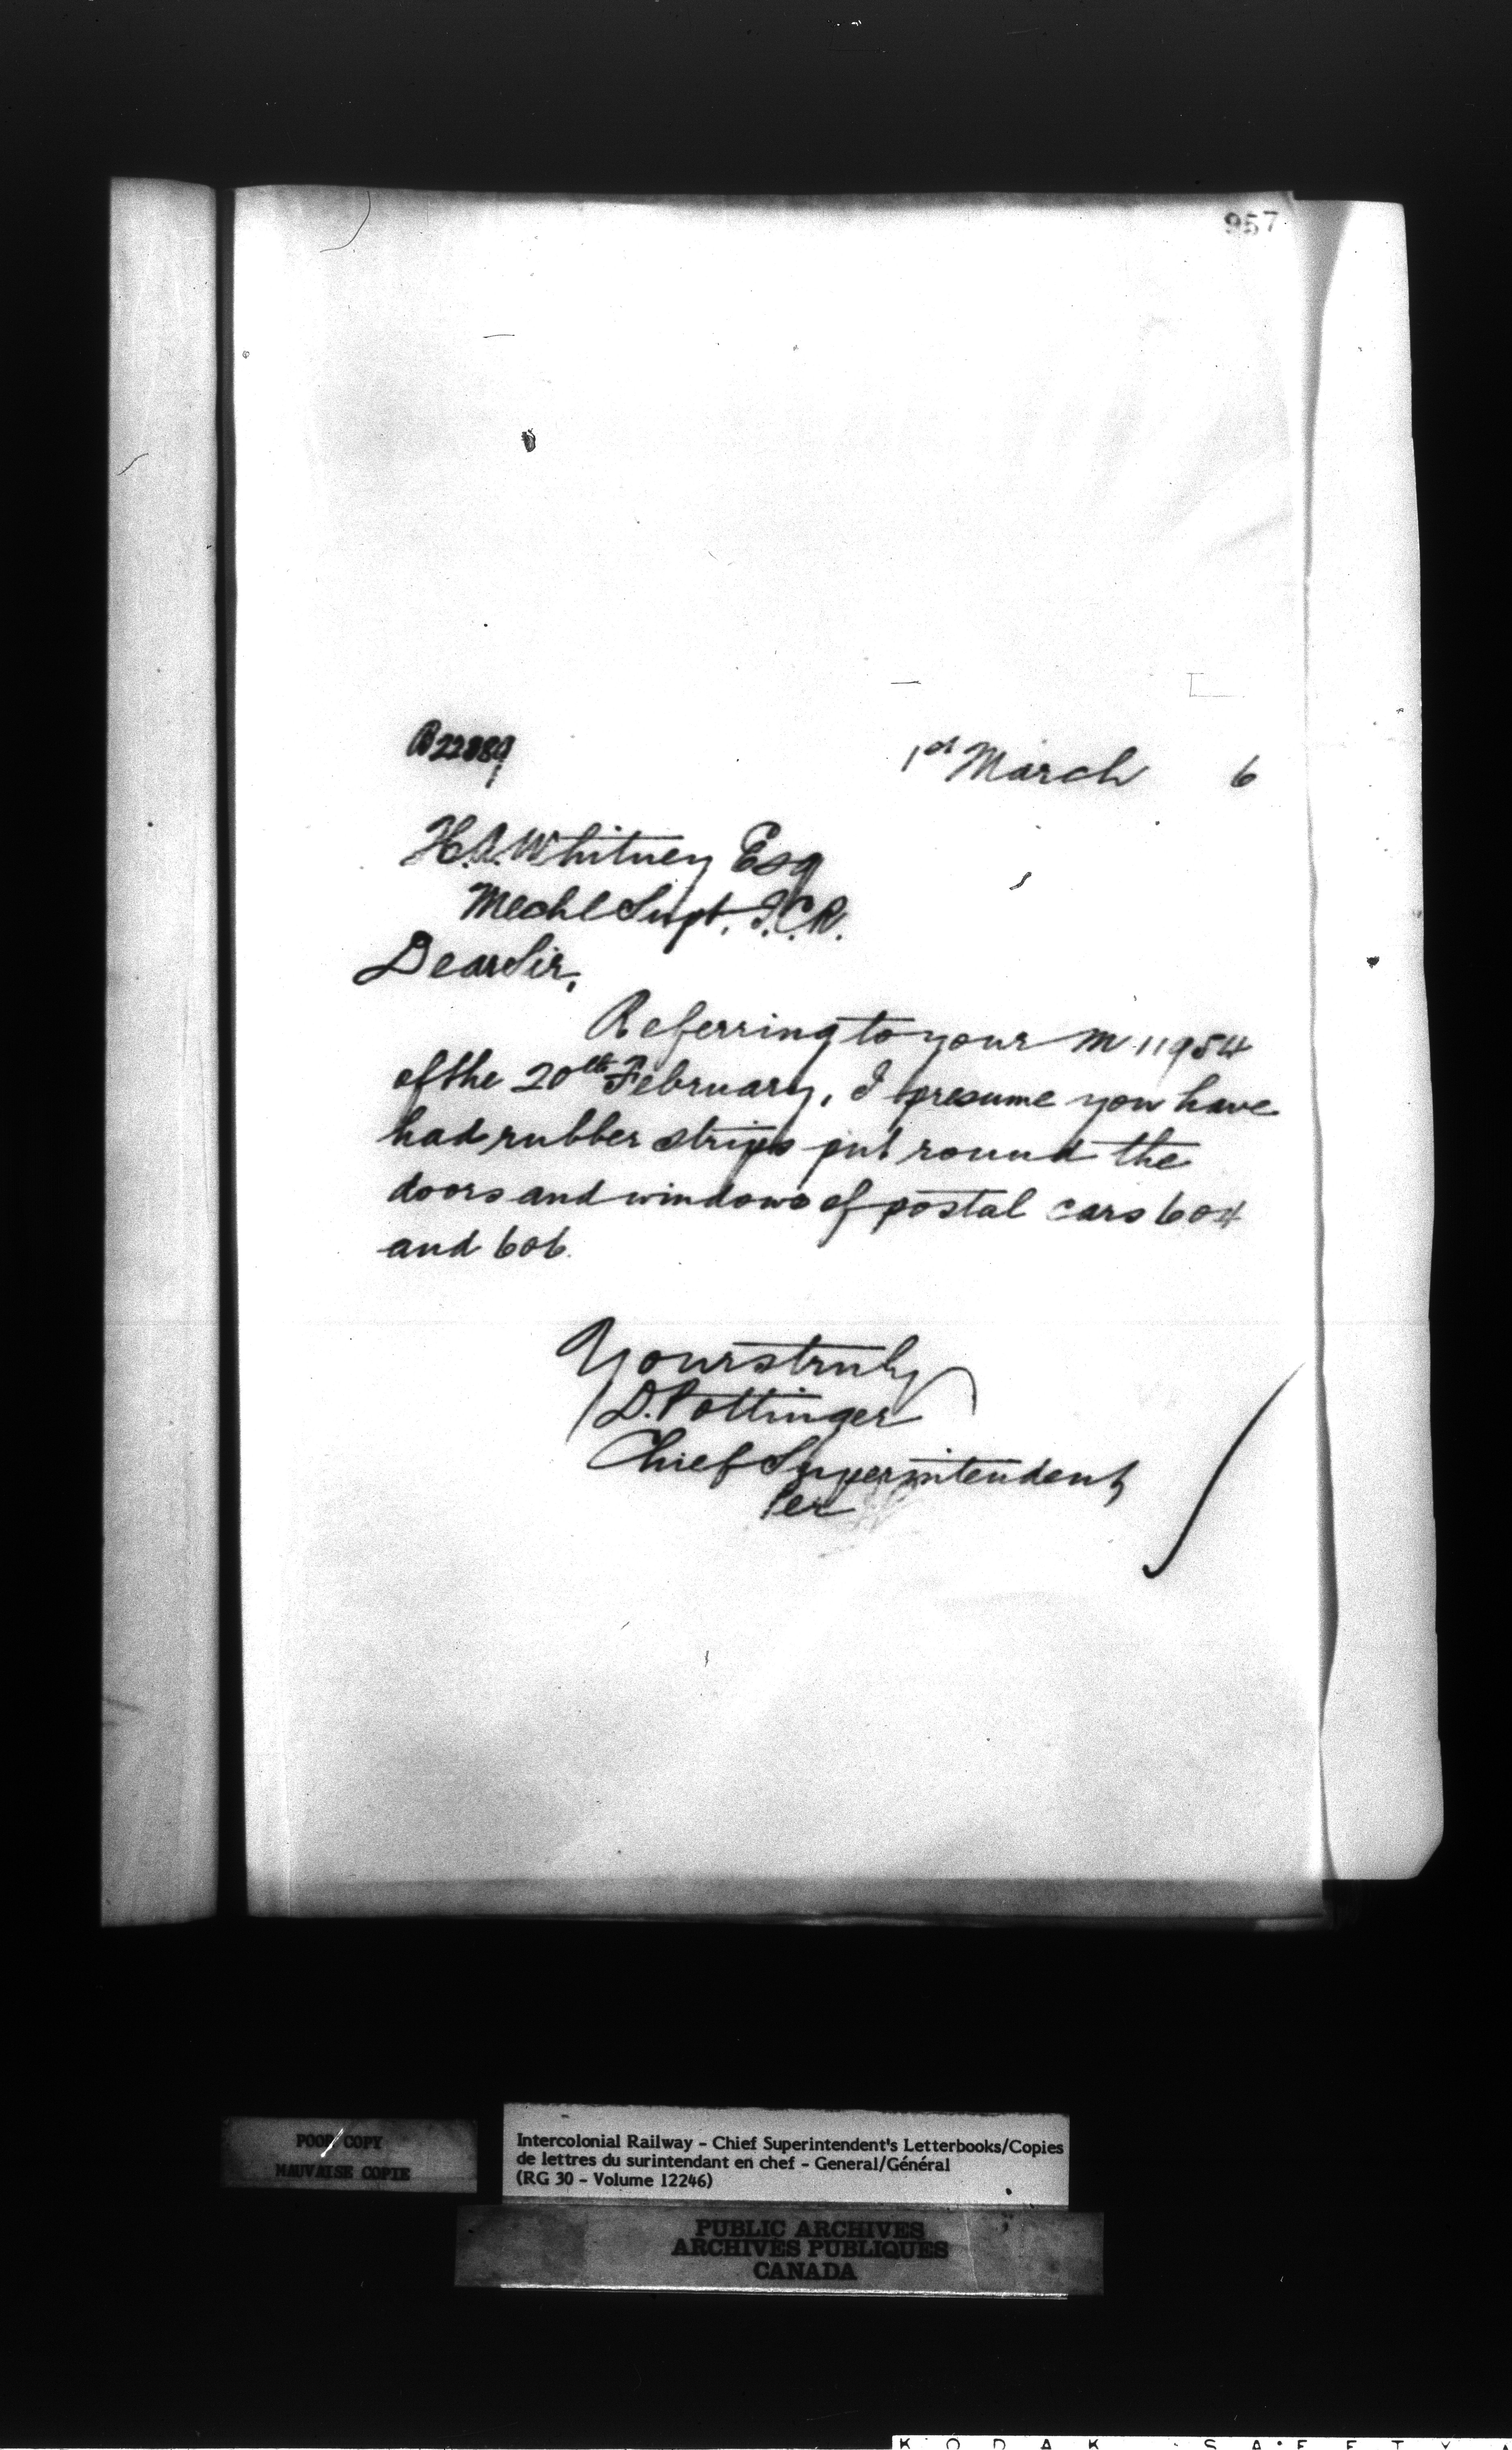 957
B22889
1st March 6
H.A. Whitney Esq
Mechl Supt, I.C.R.
Dear Sir,
Referring to your M 11954
of the 20th February, I presume you have
had rubber strips put round the
doors and windows of postal cars 604
and 606.
Yours truly
D. Pottinger
Chief Superintendent
Per
POOR COPY
MAUVAISE COPIE
Intercolonial Railway - Chief Superintendent's Letterbooks/Copies
de lettres du surintendant en chef - General/Général
(RG 30 - Volume 12246)
PUBLIC ARCHIVES
ARCHIVES PUBLIQUES
CANADA
KODAK SAFETY